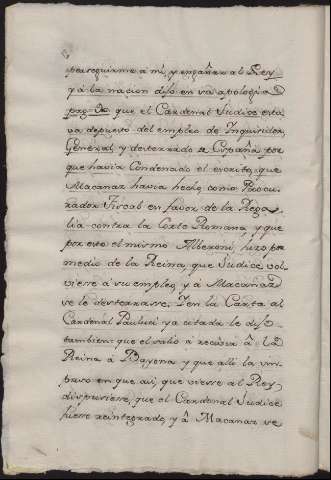 perseguirme a mi, y engañar al Rey
y á la nacion dijo en su apologia
pag. que el Cardenal Judice esta
va depuesto del empleo de Inquisidor
General, y desterrado de España por
que havia Condenado el escrito, que
Macanaz havia hecho como Procu
rador Fiscal en favor de la Rega
lia contra la Corte Romana, y que
por esto el mismo Alberoni, hizo por
medio de la Reina, que Judice vol
viese á su empleo, y á Macanaz
se le desterrase. Y en la Carta al
Cardenal Pauluci ya citada le dijo
tambien: que el salio á recivir á la
Reina á Bayona y que alli la im
puso en que, asi, que viese al Rey
dispusiese, que el Cardenal Judice
fuese reintegrado, y á Macanaz se